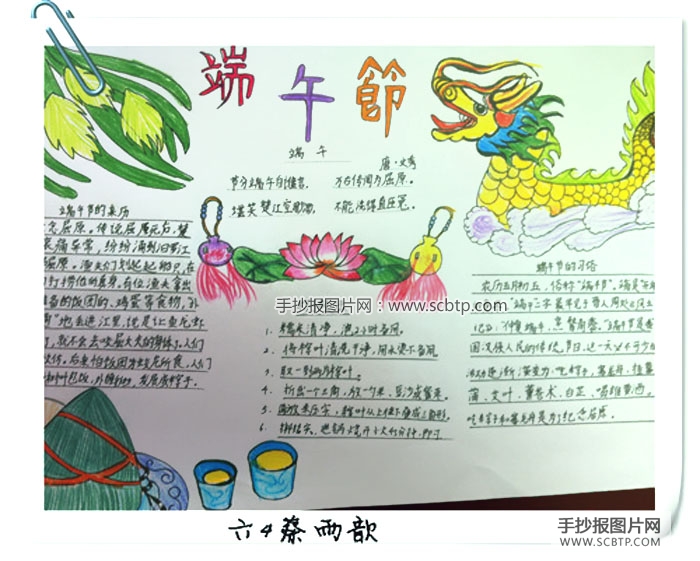 端午節
端 午
唐·文秀
节分端午自谁言，万古传闻为屈原。
堪笑楚江空渺渺，不能洗得直臣冤。
端午节的来历
念屈原。传说屈原死后，楚
哀痛异常，纷纷涌到汨罗江
屈原。渔夫们划起船只，在
打捞他的真身。有位渔夫拿出
备的饭团、鸡蛋等食物，
地丢进江里，说是让鱼龙虾
了，就不会去咬屈大夫的身体了。人们
后来怕饭团为蛟龙所食，人们
树叶包饭，外缠彩丝，发展成粽子。
手抄报图片网：www.scbtp.com
1. 糯米清净，泡2小时备用。
2. 将粽叶清洗干净，用水烫下备用。
3. 取一到两片粽叶。
4. 折出一个三角，放一勺米、豆沙或蜜枣。
5. 再放米压实，粽叶从上往下盖成三角形。
6. 绑结实，
端午节的习俗
农历五月初五，俗称"端午节"，端是"开
"端午"二字最早见于晋人周处《风土
记》
国汉族人民的传统节日，这一天必不可少的
活动逐渐演变为：吃粽子，赛龙舟，挂菖
蒲、艾叶，薰苍术、白芷，喝雄黄酒。
吃粽子和赛龙舟是为了纪念屈原。
六4蔡雨歆
手抄报图片网
WWW.SCBTP.COM